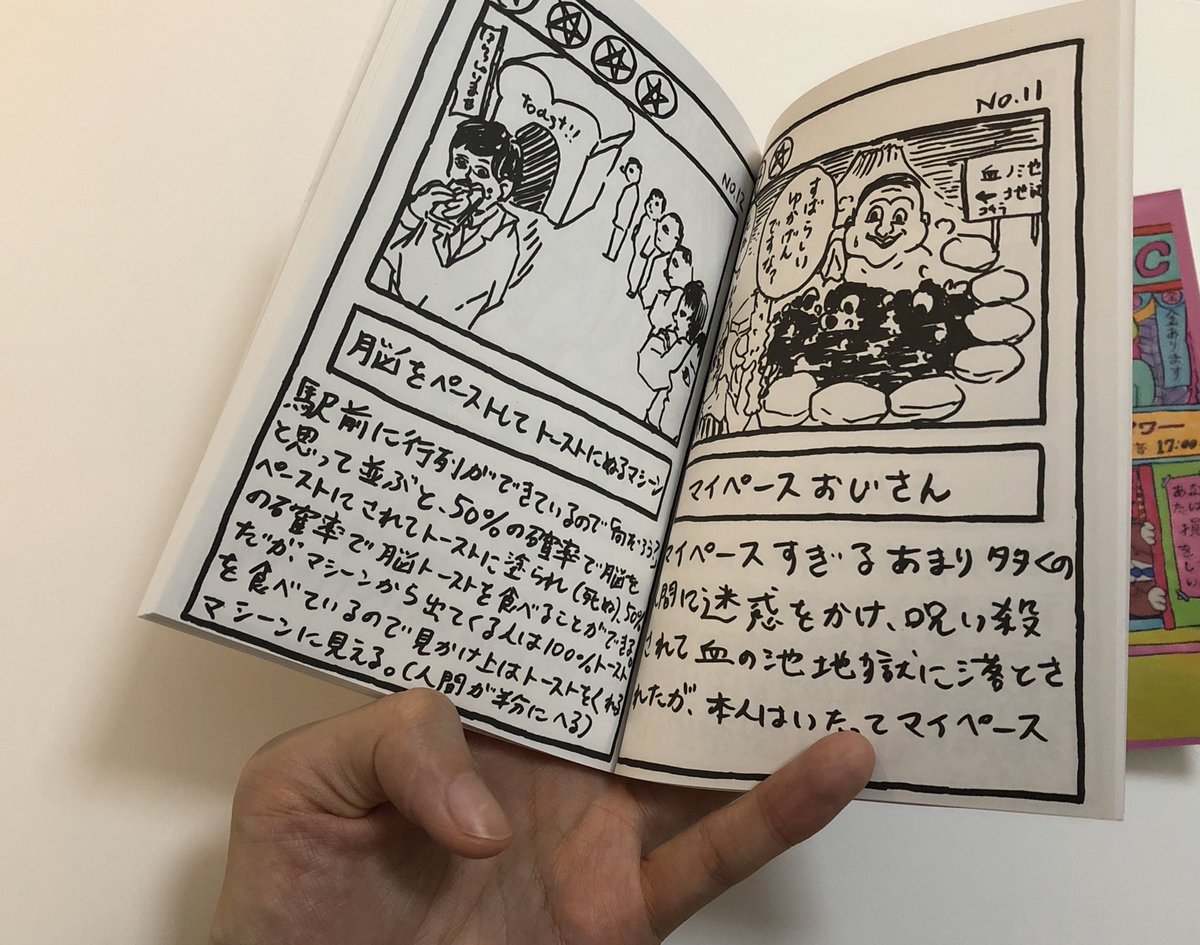 NO.12
toast!!
脳をペーストしてトーストにぬるマシーン
駅前に行列ができているので何だろう?
と思って並ぶと、50%の確率で脳を
ペーストにされてトーストに塗られ(死ぬ)、50%
の確率で脳トーストを食べることができる。
だが、マシーンから出てくる人は100%トースト
を食べているので見かけ上はトーストをくれる
マシーンに見える。(人間が半分にへる)
NO.11
血ノ池
地獄
すばらしい
ゆかげん
ですな?
マイペースおじさん
マイペースすぎるあまり多くの
人間に迷惑をかけ、呪い殺
されて血の池地獄に落とさ
れたが、本人はいたってマイペース
C
金あります
ワー
17:00